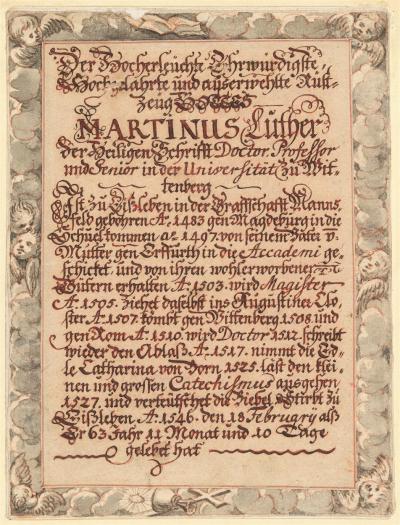 Der Hocherleuchte Ehrwürdigste,
Hochgelahrte und außerwehlte Rüst-
Zeug GOTTES
MARTINUS Luther
der Heiligen Schrifft Doctor, Professor
und Senior in der Universität zu Wit-
tenberg
Ist zu Eißleben in der Graffschafft Manns
feld gebohren A: 1483 gen Magdeburg in die
Schuel kommen aº 1497. von seinem Vater v.
Mutter gen Erffürth in die Accademi ge-
schicket, und von ihren wohlerworbenen
Gütern erhalten A: 1503. wird Magister
A: 1505. ziehet daselbst ins Augustiner Clo-
ster A: 1507. kömbt gen Wittenberg 1508. und
gen Rom A: 1510. wird Doctor 1512. schreibt
wieder den Ablaß A: 1517. nimmt die Ed-
le Catharina von Born 1525. läst den klei-
nen und grossen Catechismus ausgehen
1527. und verteutschet die Biebel. Stirbt zu
Eißleben A: 1546. den 18 February alß
Er 63 Jahr 11 Monat und 10 Tage
gelebet hat